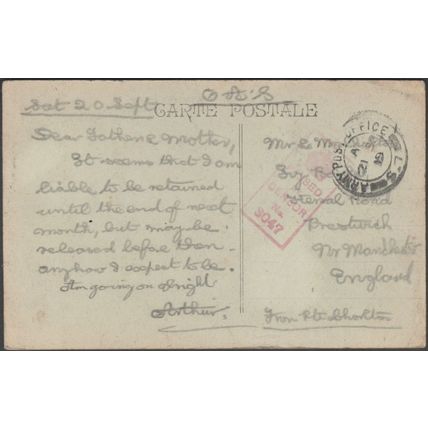 Sat 20 Sept
O A S
CARTE POSTALE
Dear Father & Mother,
It seems that I am
liable to be retained
until the end of next
month, but may be
released before then -
anyhow I expect to be.
Am going on alright
Arthur.
Mr &
Road
Prestwich
Nr Manchester
England
From Pte Chorlton
ARMY POST OFFICE
A
21
19
S
PASSED
CENSOR
No
3047